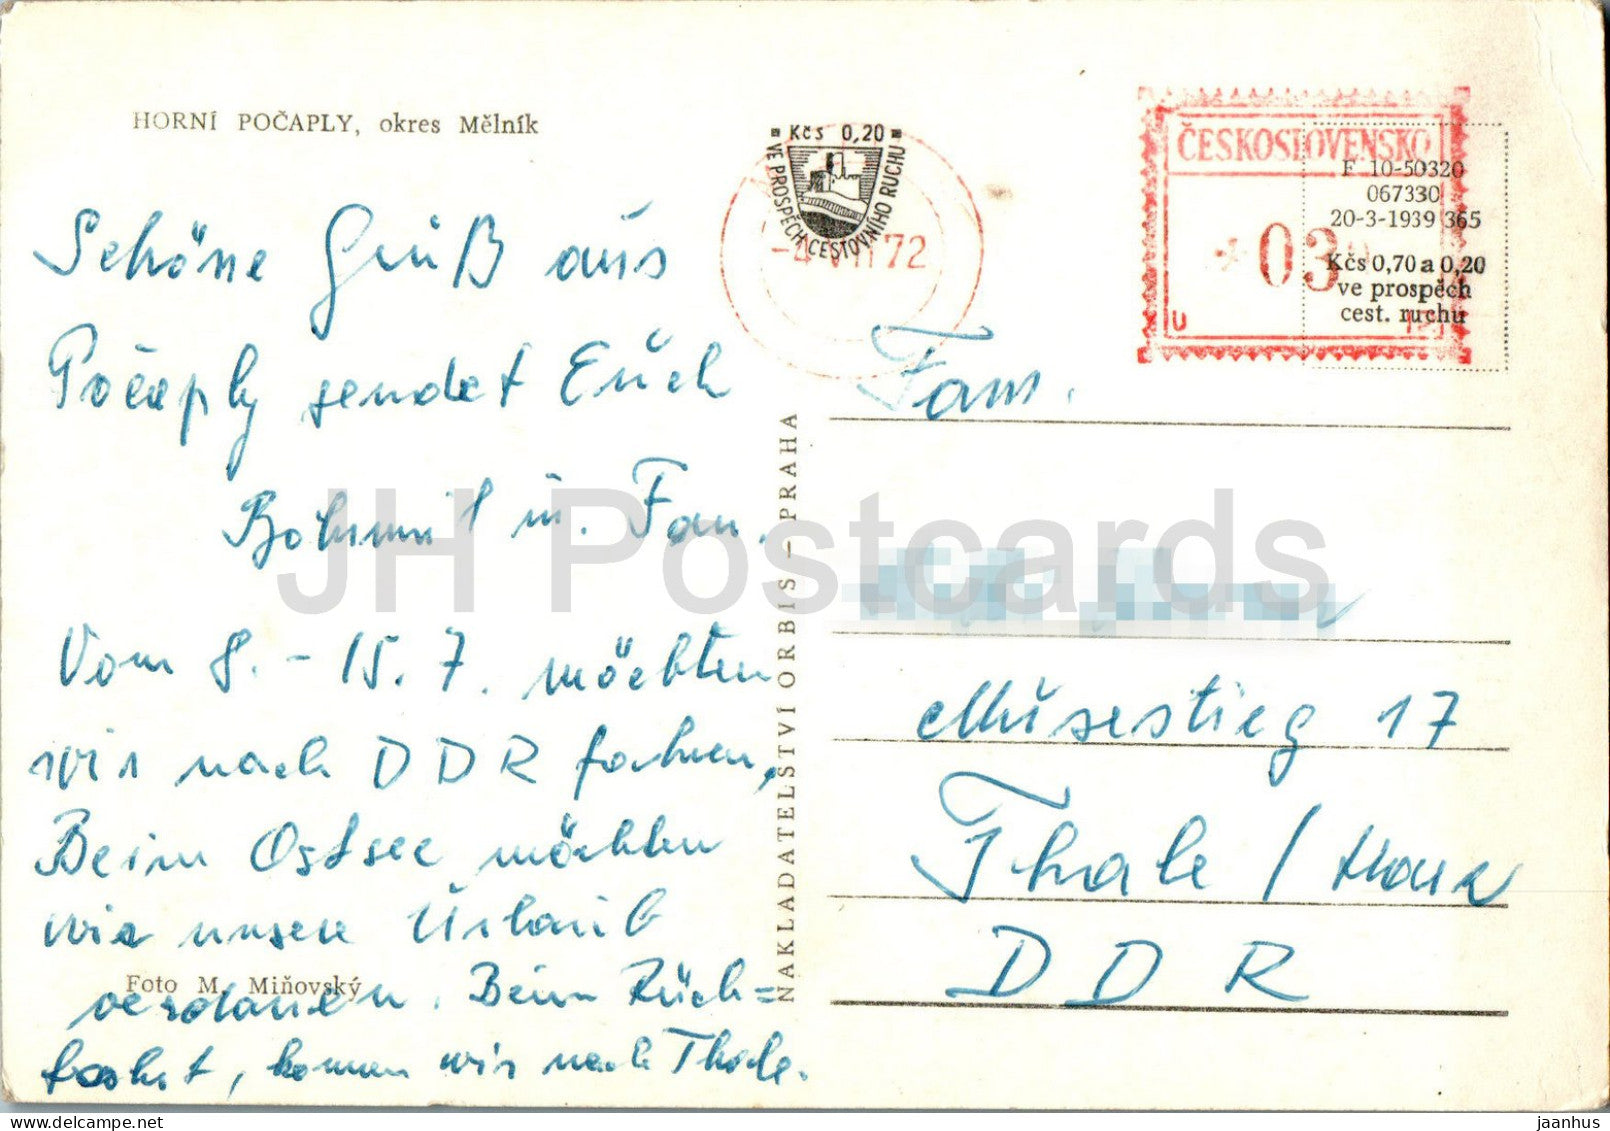 HORNÍ POČAPLY, okres Mělník
Kčs 0,20
VE PROSPĚCH CESTOVNÍHO RUCHU
-4 VII 72
ČESKOSLOVENSKO
03
F 10-50320
067330
20-3-1939 365
Kčs 0,70 a 0,20
ve prospěch
cest. ruchu
Schöne Gruß aus
Počaply sendet Euch
Bohumil u. Fam.
Vom 8. - 15. 7. möchten
wir nach DDR fahren,
Beim Ostsee möchten
wir unsere Urlaub
Foto M. Miňovský
Beim Rück=
fahrt, komen wir nach Thale.
NAKLADATELSTVÍ ORBIS – PRAHA
Fam.
Müsestieg 17
Thale / Harz
DDR
JH Postcards
jaanhus